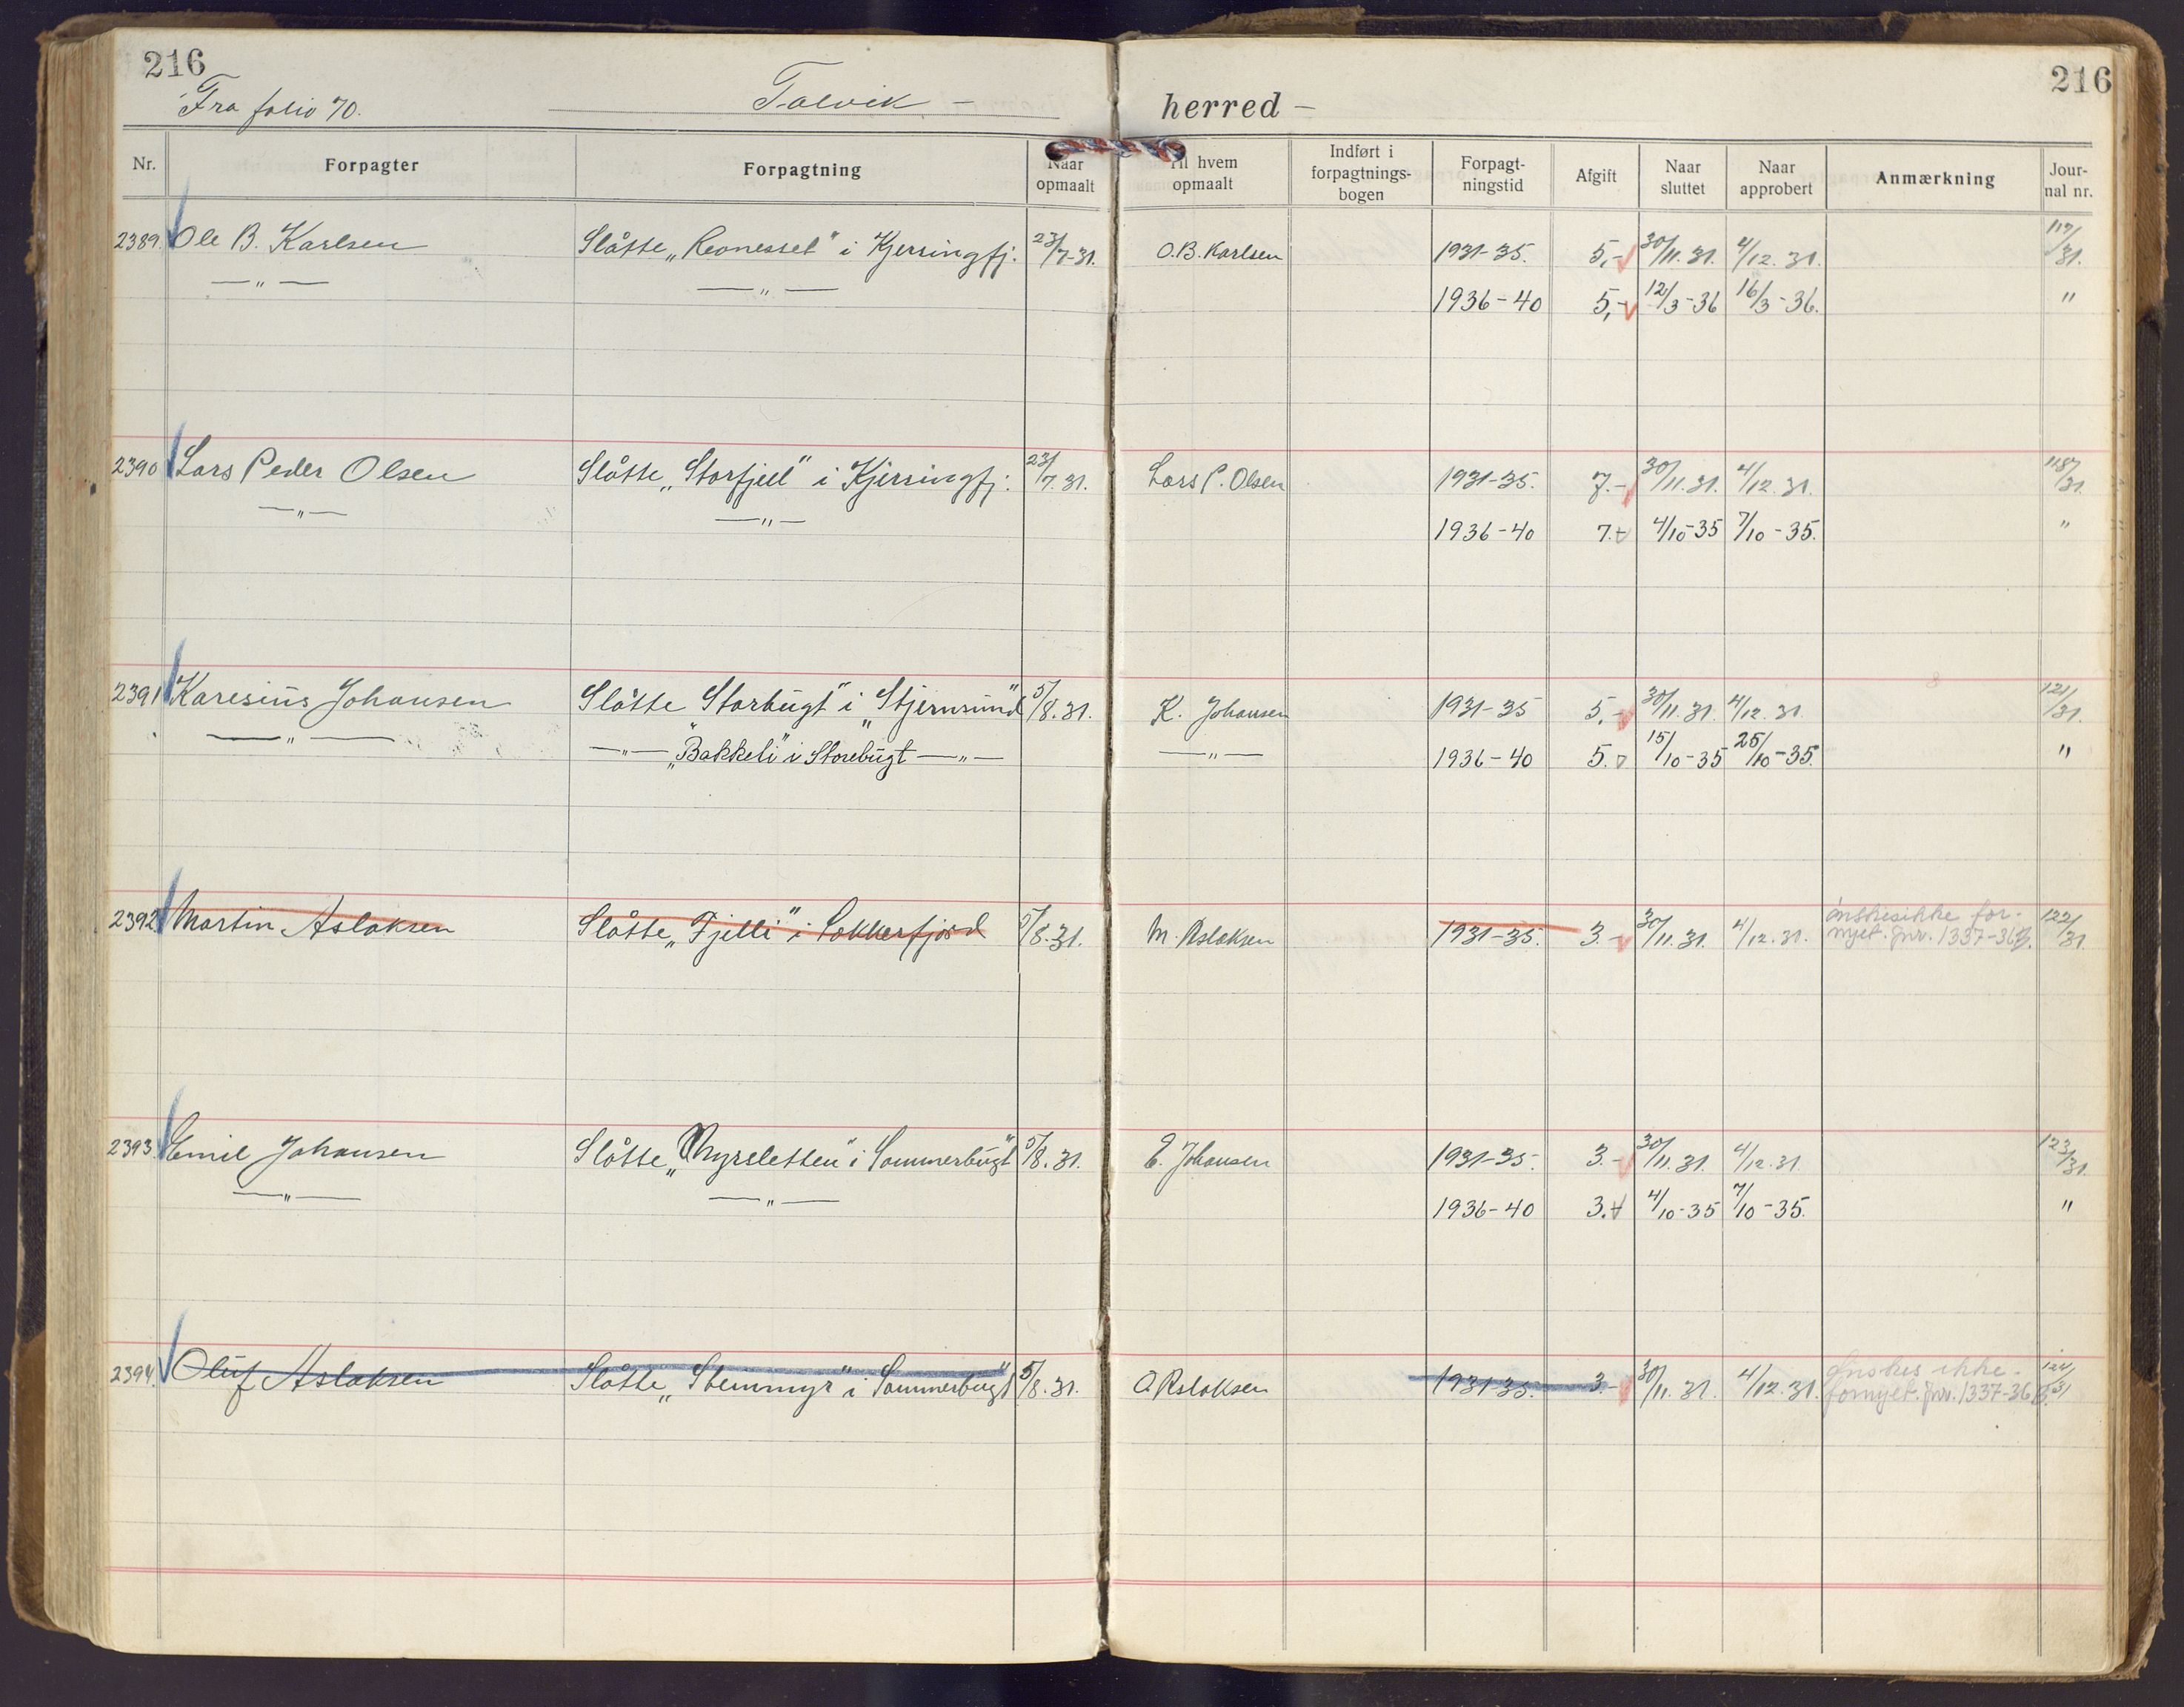 216
216
Fra folio 70.
Talvik – herred –
Nr. Forpagter Forpagtning Naar opmaalt Til hvem opmaalt Indført i forpagtnings-bogen Forpagt-ningstid Afgift Naar sluttet Naar approbert Anmærkning Jour-nal nr.
2389. Ole B. Karlsen Slåtte „ " i Kjersingfj: 23/7-31. O.B. Karlsen 1931-35. 5,- 30/11.31. 4/12.31. 117/31.
—„— —„— 1936-40 5,- 12/3-36 16/3-36. "
2390 Lars Peder Olsen Slåtte „Storfjell" i Kjersingfj: 23/7.31. Lars P. Olsen 1931-35. 7.- 30/11.31. 4/12.31. 118/31.
—„— —„— 1936-40 7.- 4/10-35 7/10-35. "
2391 Karesius Johansen Slåtte „Storbugt" i „Stjernsund" 5/8.31. K. Johansen 1931-35 5,- 30/11.31. 4/12.31 121/31.
—„— —„— „Bakkeli" i Storebugt —„— —„— 1936-40 5. 15/10-35 25/10-35. "
2392 Martin Aslaksen Slåtte „Fjelli" i Lokkerfjord 5/8.31. M. Aslaksen 1931-35. 3.- 30/11.31. 4/12.31. ønskes ikke for-
nyet. jnr. 1337-36 122/31.
2393. Emil Johansen Slåtte „Myrsletten" i Sommerbugt" 5/8.31. E. Johansen 1931-35. 3.- 30/11.31. 4/12.31. 123/31.
—„— —„— 1936-40 3.- 4/10-35 7/10-35. "
2394. Oluf Aslaksen Slåtte „Stemmyr" i Sommerbugt" 5/8.31. O Aslaksen 1931-35. 3.- 30/11.31. 4/12.31. Ønskes ikke
fornyet. jnr. 1337-36 124/31